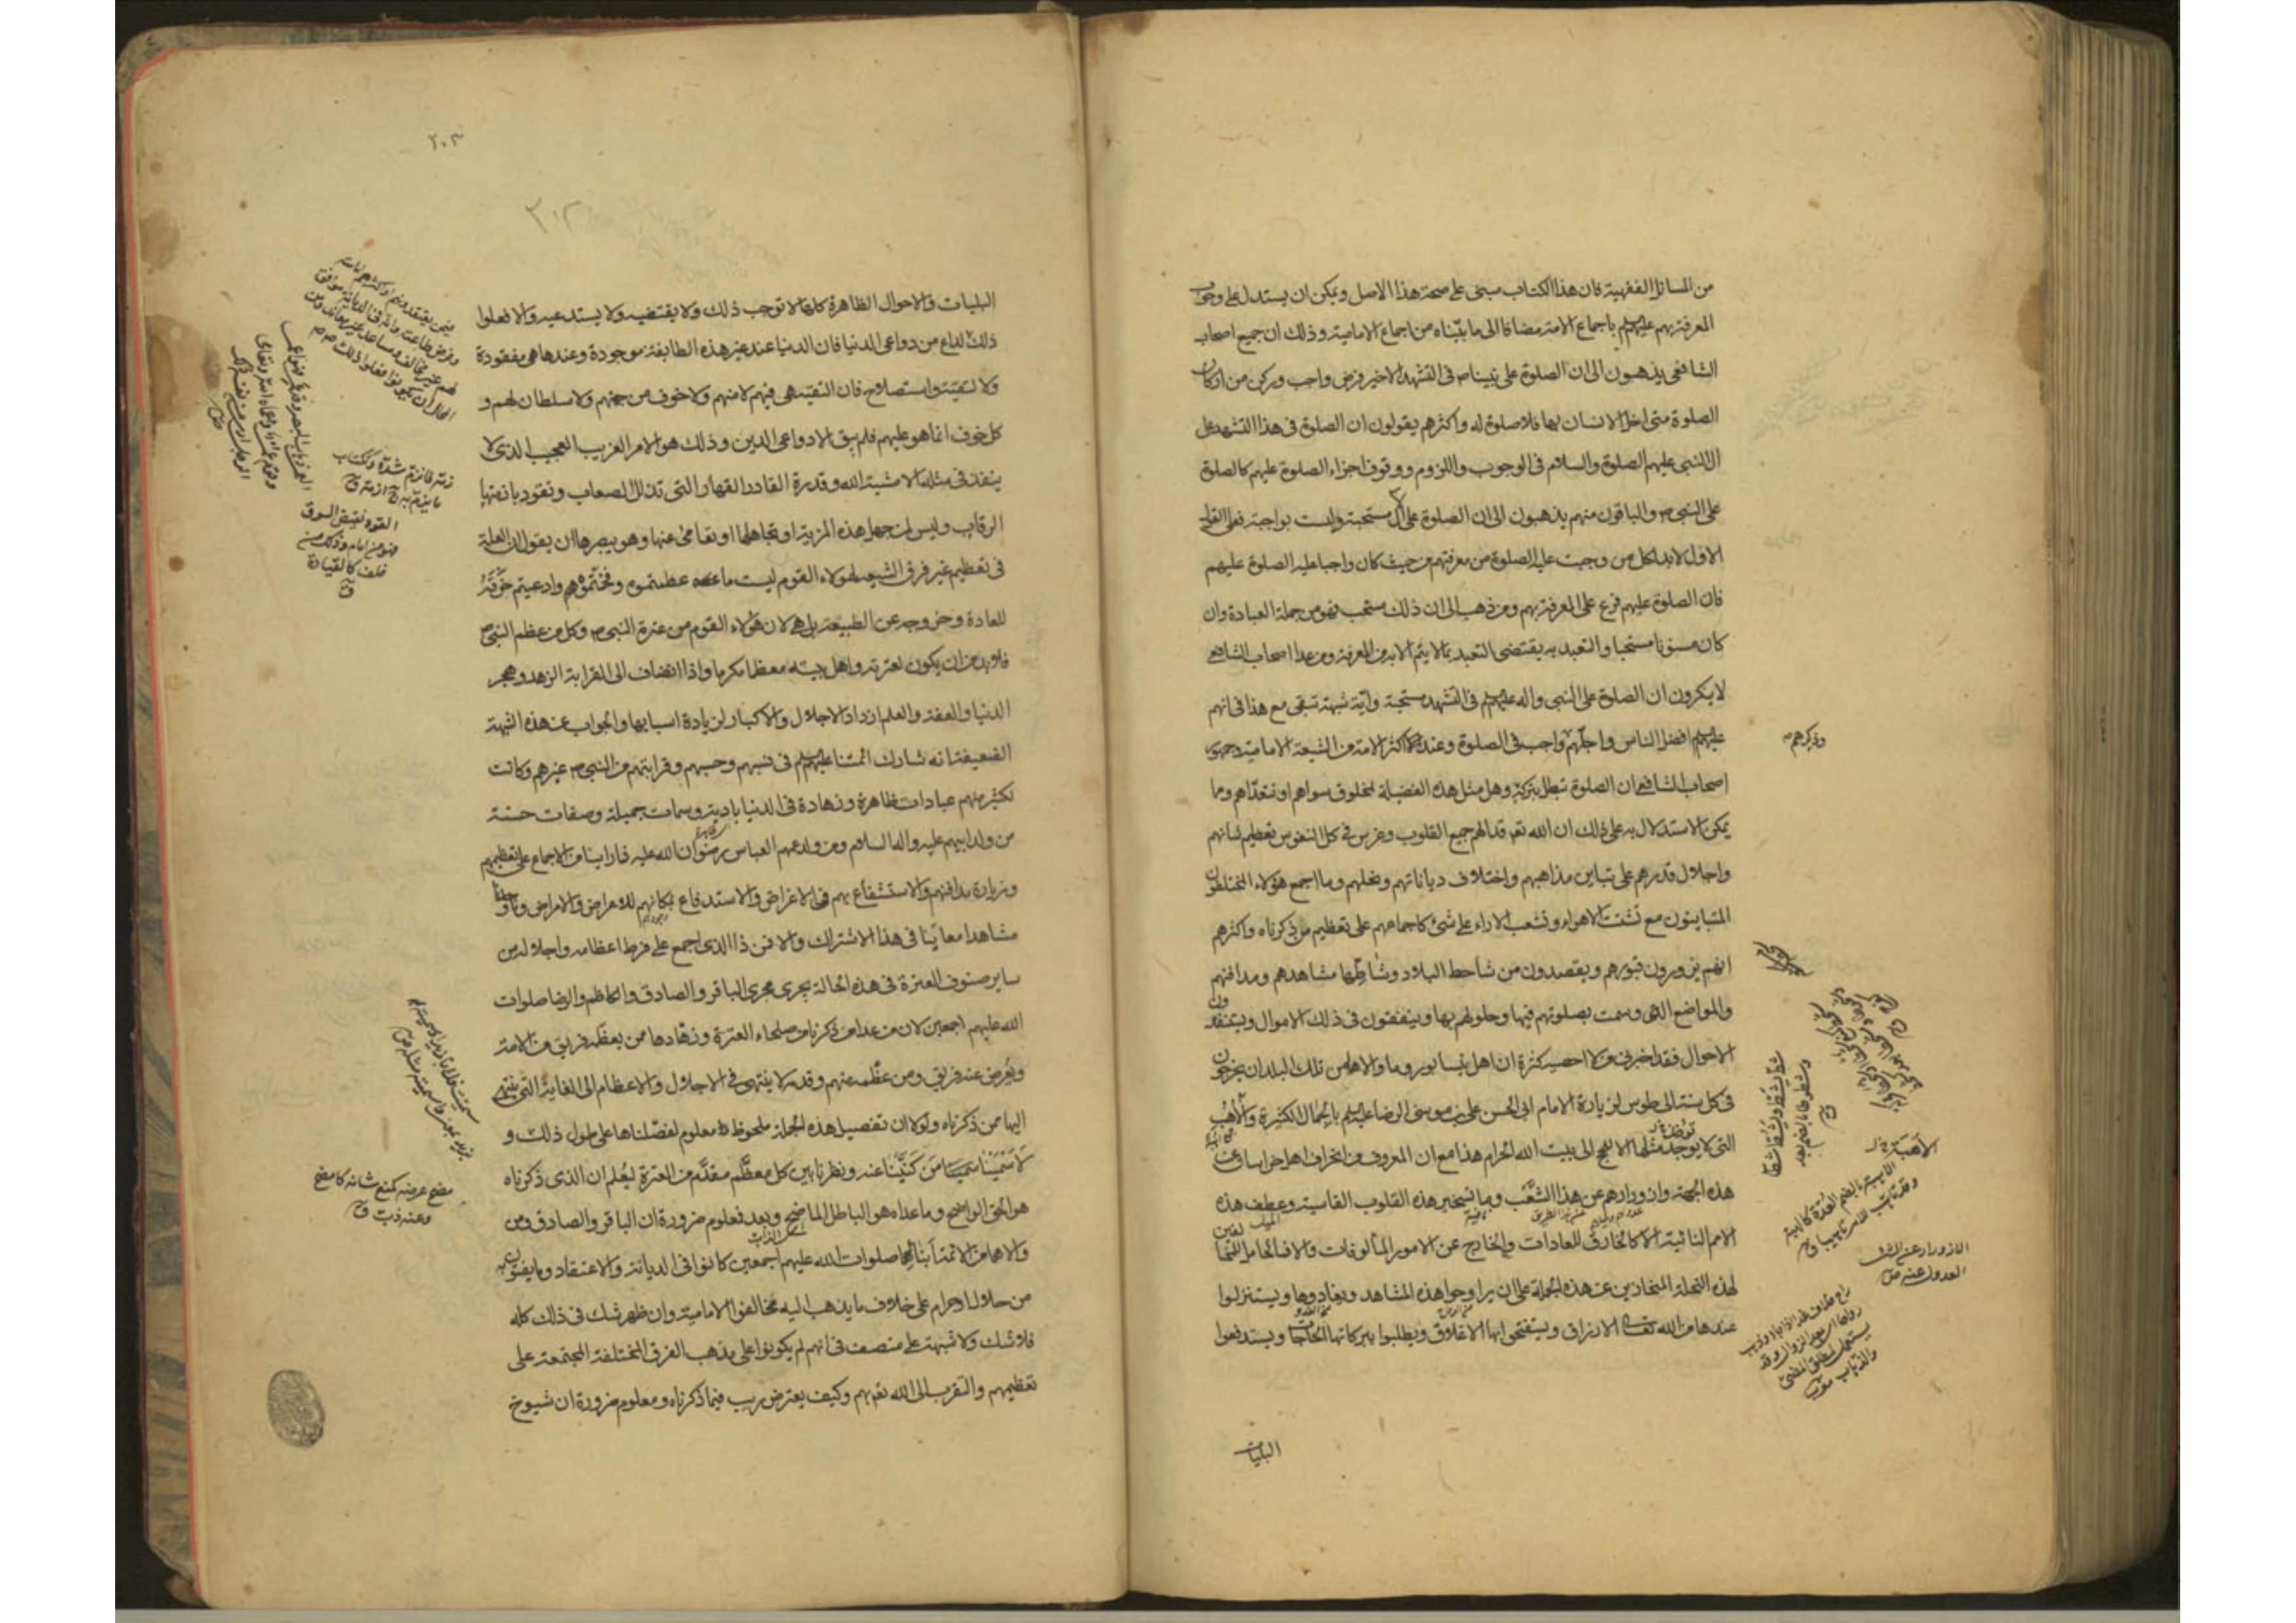 من المسائل الفقهية فان هذا الكتاب مبنى على صحة هذا الاصل ويمكن ان يستدل على وجوب
المعرفة بهم عليهم باجماع الامة مضافا الى ما بيّناه من اجماع الامامية وذلك ان جميع اصحاب
الشافعى يذهبون الى ان الصلوة على نبينا ص فى التشهد الاخير فرض واجب وركن من اركان
الصلوة متى اخل الانسان بها فلا صلوة له واكثرهم يقولون ان الصلوة فى هذا التشهد على
ال النبى عليهم الصلوة والسلام فى الوجوب واللزوم ووقوف اجزاء الصلوة عليهم كالصلوة
على النبى ص والباقون منهم يذهبون الى ان الصلوة على ال مستحبة وليست بواجبة فعلى القول
الاول لابد لكل من وجبت عليه الصلوة من معرفتهم من حيث كان واجبا عليه الصلوة عليهم
فان الصلوة عليهم فرع على المعرفة بهم ومن ذهب الى ان ذلك مستحب فهو من جملة العبادة وان
كان مسنونا مستحبا والتعبد به يقتضى التعبد بما لا يتم الا به من المعرفة ومن عدا اصحاب الشافعى
لا ينكرون ان الصلوة على النبى واله عليهم فى التشهد مستحبة واية شبهة تبقى مع هذا فى انهم
عليهم افضل الناس واجلّهم واجب فى الصلوة وعند اكثر الامة من الشيعة الامامية وجمهور
اصحاب الشافعى ان الصلوة تبطل بتركه وهل مثل هذه الفضيلة لمخلوق سواهم او تتعدّاهم وما
يمكن الاستدلال به على ذلك ان الله تع قد الهم جميع القلوب وغرس فى كل النفوس تعظيم شانهم
واجلال قدرهم على تباين مذاهبهم واختلاف دياناتهم ونحلهم وما اجمع هؤلاء المختلفون
المتباينون مع تشتت الاهواء وتشعب الاراء على شئ كاجماعهم على تعظيم من ذكرناه واكثرهم
انهم يزورون قبورهم ويقصدون من شاحط البلاد وشاطئها مشاهدهم ومدافنهم
والمواضع التى وسمت بصلوتهم فيها وحلولهم بها وينفقون فى ذلك الاموال ويستنفدون
الاحوال فقد اخبرنى من لا احصيه كثرة ان اهل نيسابور وما والاها من تلك البلدان يخرجون
فى كل سنة الى طوس لزيارة الامام ابى الحسن على بن موسى الرضا عليهم بالجمال الكثيرة والاهب
التى لا يوجد مثلها الا للحج الى بيت الله الحرام هذا مع ان المعروف من انحراف اهل خراسان عن
هذه الجهة وازورارهم عن هذا الشعب وما تسخير هذه القلوب القاسية وعطف هذه
الامم النائية الا كالخارق للعادات والخارج عن الامور المالوفات والا فما الحامل للمخالفين
لهذه النحلة المنحازين عن هذه الجملة على ان يراوحوا هذه المشاهد ويغادوها ويستنزلوا
عندها من الله تعالى الارزاق ويستفتحوا بها الاغلاق ويطلبوا ببركاتها الحاجات ويستدفعوا
البليات
وذكرهم ص
الأهبة
الازورار عن الشئ
العدول عنه ص
٢٠٣
٣٠٢
البليات والاحوال الظاهرة كلها لا توجب ذلك ولا يقتضيه ولا يستدعيه والا فعلوا
ذلك لداع من دواعى الدنيا فان الدنيا عند غير هذه الطائفة موجودة وعندها هى مفقودة
ولا لتقية واستصلاح فان التقية هى فيهم لا منهم ولا خوف من جهتهم ولا سلطان لهم و
كل خوف انما هو عليهم فلم يبق الا دواعى الدين وذلك هو الامر الغريب العجيب الذى لا
ينفذ فى مثله الا مشية الله وقدرة القادر القهار التى تذلل الصعاب وتقود بازمتها
الرقاب وليس لمن جهل هذه المزية او تجاهلها او تعامى عنها وهو يبصرها ان يقول ان العلة
فى تعظيم غير فرق الشيعة لهؤلاء القوم ليست ما عظمتموه وفخّمتموه وادعيتم خرقه
للعادة وخروجه عن الطبيعة بل هى لان هؤلاء القوم من عترة النبى ص وكل من عظم النبى ص
فلابد من ان يكون لعترته واهل بيته معظما مكرما واذا انضاف الى القرابة الزهد وهجر
الدنيا والعفة والعلم ازداد الاجلال والاكبار لزيادة اسبابها والجواب عن هذه الشبهة
الضعيفة انه شارك ائمتنا عليهم فى نسبهم وحسبهم وقرابتهم من النبى ص غيرهم وكانت
لكثير منهم عبادات ظاهرة وزهادة فى الدنيا بادية وسمات جميلة وصفات حسنة
من ولد ابيهم عليه واله السلام ومن ولد عمهم العباس رضوان الله عليه فما راينا من الاجماع على تعظيمهم
وزيارة مدافنهم والاستشفاع بهم فى الاغراض والاستدفاع بمكانهم للاعراض والامراض وما وجدنا
مشاهدا معاينا فى هذا الاشتراك والا فمن ذا الذى اجمع على فرط اعظامه واجلاله من
ساير صنوف العترة فى هذه الحالة يجرى مجرى الباقر والصادق والكاظم والرضا صلوات
الله عليهم اجمعين لان من عدا من ذكرناه من صلحاء العترة وزهادها ممن يعظمه فريق من الامة
ويعرض عنه فريق ومن عظّمه منهم وقدمه لا ينتهى فى الاجلال والاعظام الى الغاية التى ينتهى
اليها من ذكرناه ولولا ان تفصيل هذه الجملة ملحوظ معلوم لفصّلناها على طول ذلك و
لاسمينا من كنينا عنه ونظرنا بين كل معظّم مقدّم من العترة ليعلم ان الذى ذكرناه
هو الحق الواضح وما عداه هو الباطل الماضح وبعد فمعلوم ضرورة ان الباقر والصادق ومن
والاهما من الائمة ابنائهما صلوات الله عليهم اجمعين كانوا فى الديانة والاعتقاد وما يفتون به
من حلال او حرام على خلاف ما يذهب اليه مخالفوا الامامية وان ظهر شك فى ذلك كله
فلا شك ولا شبهة على منصف فى انهم لم يكونوا على مذهب الفرق المختلفة المجتمعة على
تعظيمهم والتقرب الى الله تع بهم وكيف يعترض ريب فيما ذكرناه ومعلوم ضرورة ان شيوخ
القود نقيض السوق
فهو من امام وذلك من
خلف كالقيادة
ق
مضح عرضه كمنع شانه كامضح
وعنه ذب ق